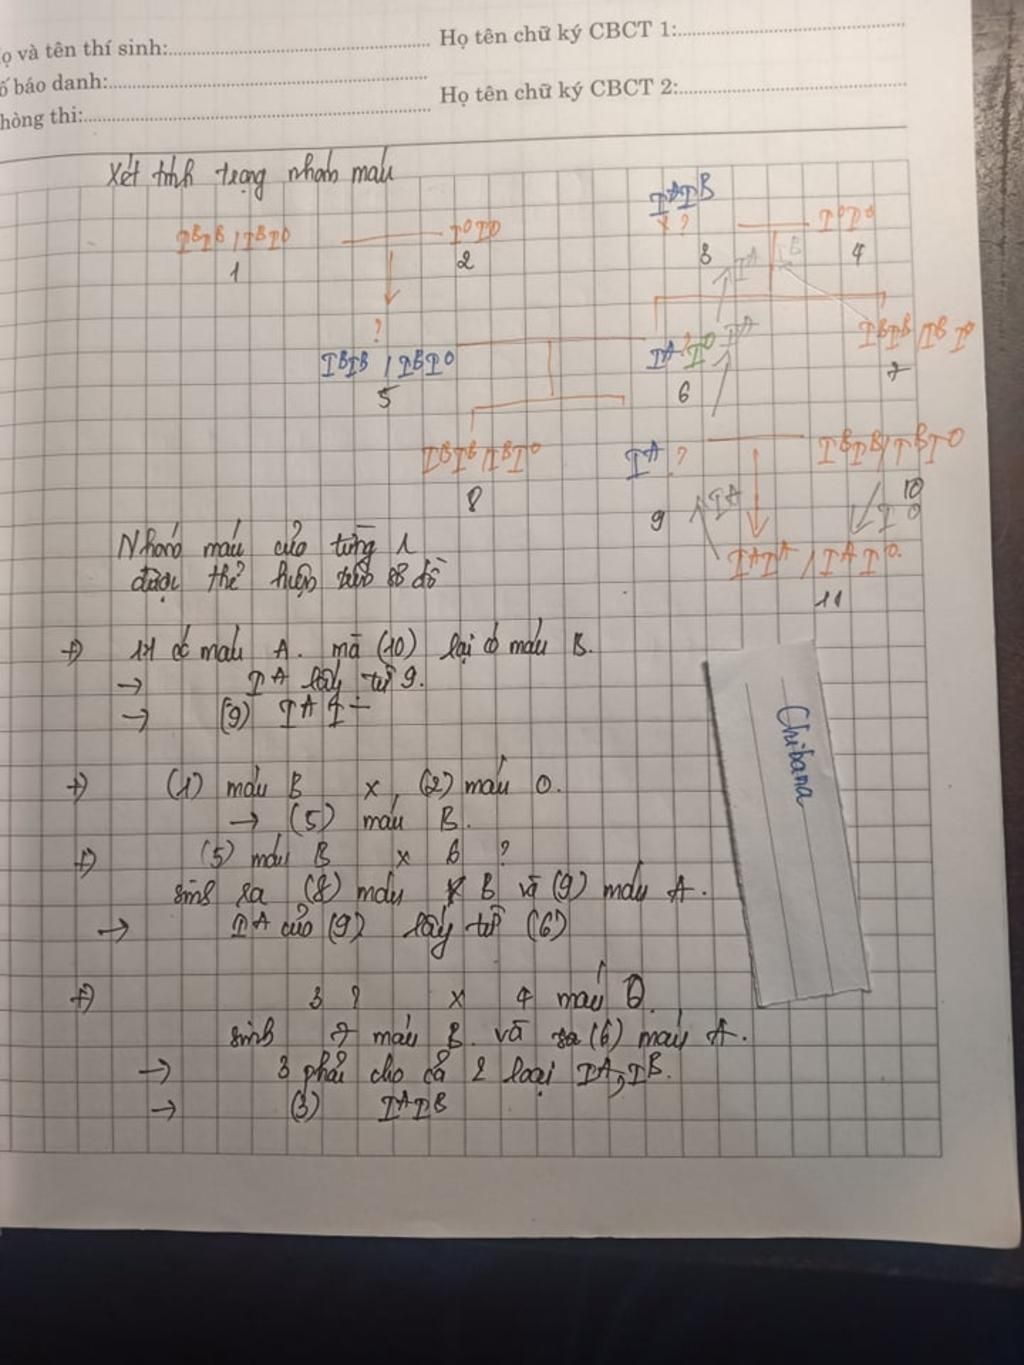 ọ và tên thí sinh:
Họ tên chữ ký CBCT 1:
ố báo danh:
Họ tên chữ ký CBCT 2:
hòng thi:
Xét tính trạng nhóm máu
IᴮIᴮ / IᴮIᴼ
IᴼIᴼ
IᴬIᴮ
x ?
IᴼIᴼ
1
2
3
4
Iᴬ
Iᴮ
?
IᴮIᴮ / IᴮIᴼ
Iᴬ ? Iᴼ Iᴬ
IᴮIᴮ / IᴮIᴼ
5
6
7
IᴮIᴮ / IᴮIᴼ
Iᴬ ?
IᴮIᴮ / IᴮIᴼ
8
9
10
Iᴬ
Iᴼ
IᴬIᴬ / IᴬIᴼ
11
Nhóm máu của từng
được thể hiện trên sơ đồ
+) 11 có máu A. mà (10) lại có máu B.
→ Iᴬ lấy từ 9.
→ (9) Iᴬ I⁻
+) (1) máu B x (2) máu O.
→ (5) máu B.
+) (5) máu B x 6 ?
sinh ra (8) máu B và (9) máu A.
→ Iᴬ của (9) lấy từ (6)
+) 3 ? x 4 máu O.
sinh 7 máu B. và ra (6) máu A.
→ 3 phải cho cả 2 loại Iᴬ, Iᴮ.
→ (3) IᴬIᴮ
Chibana